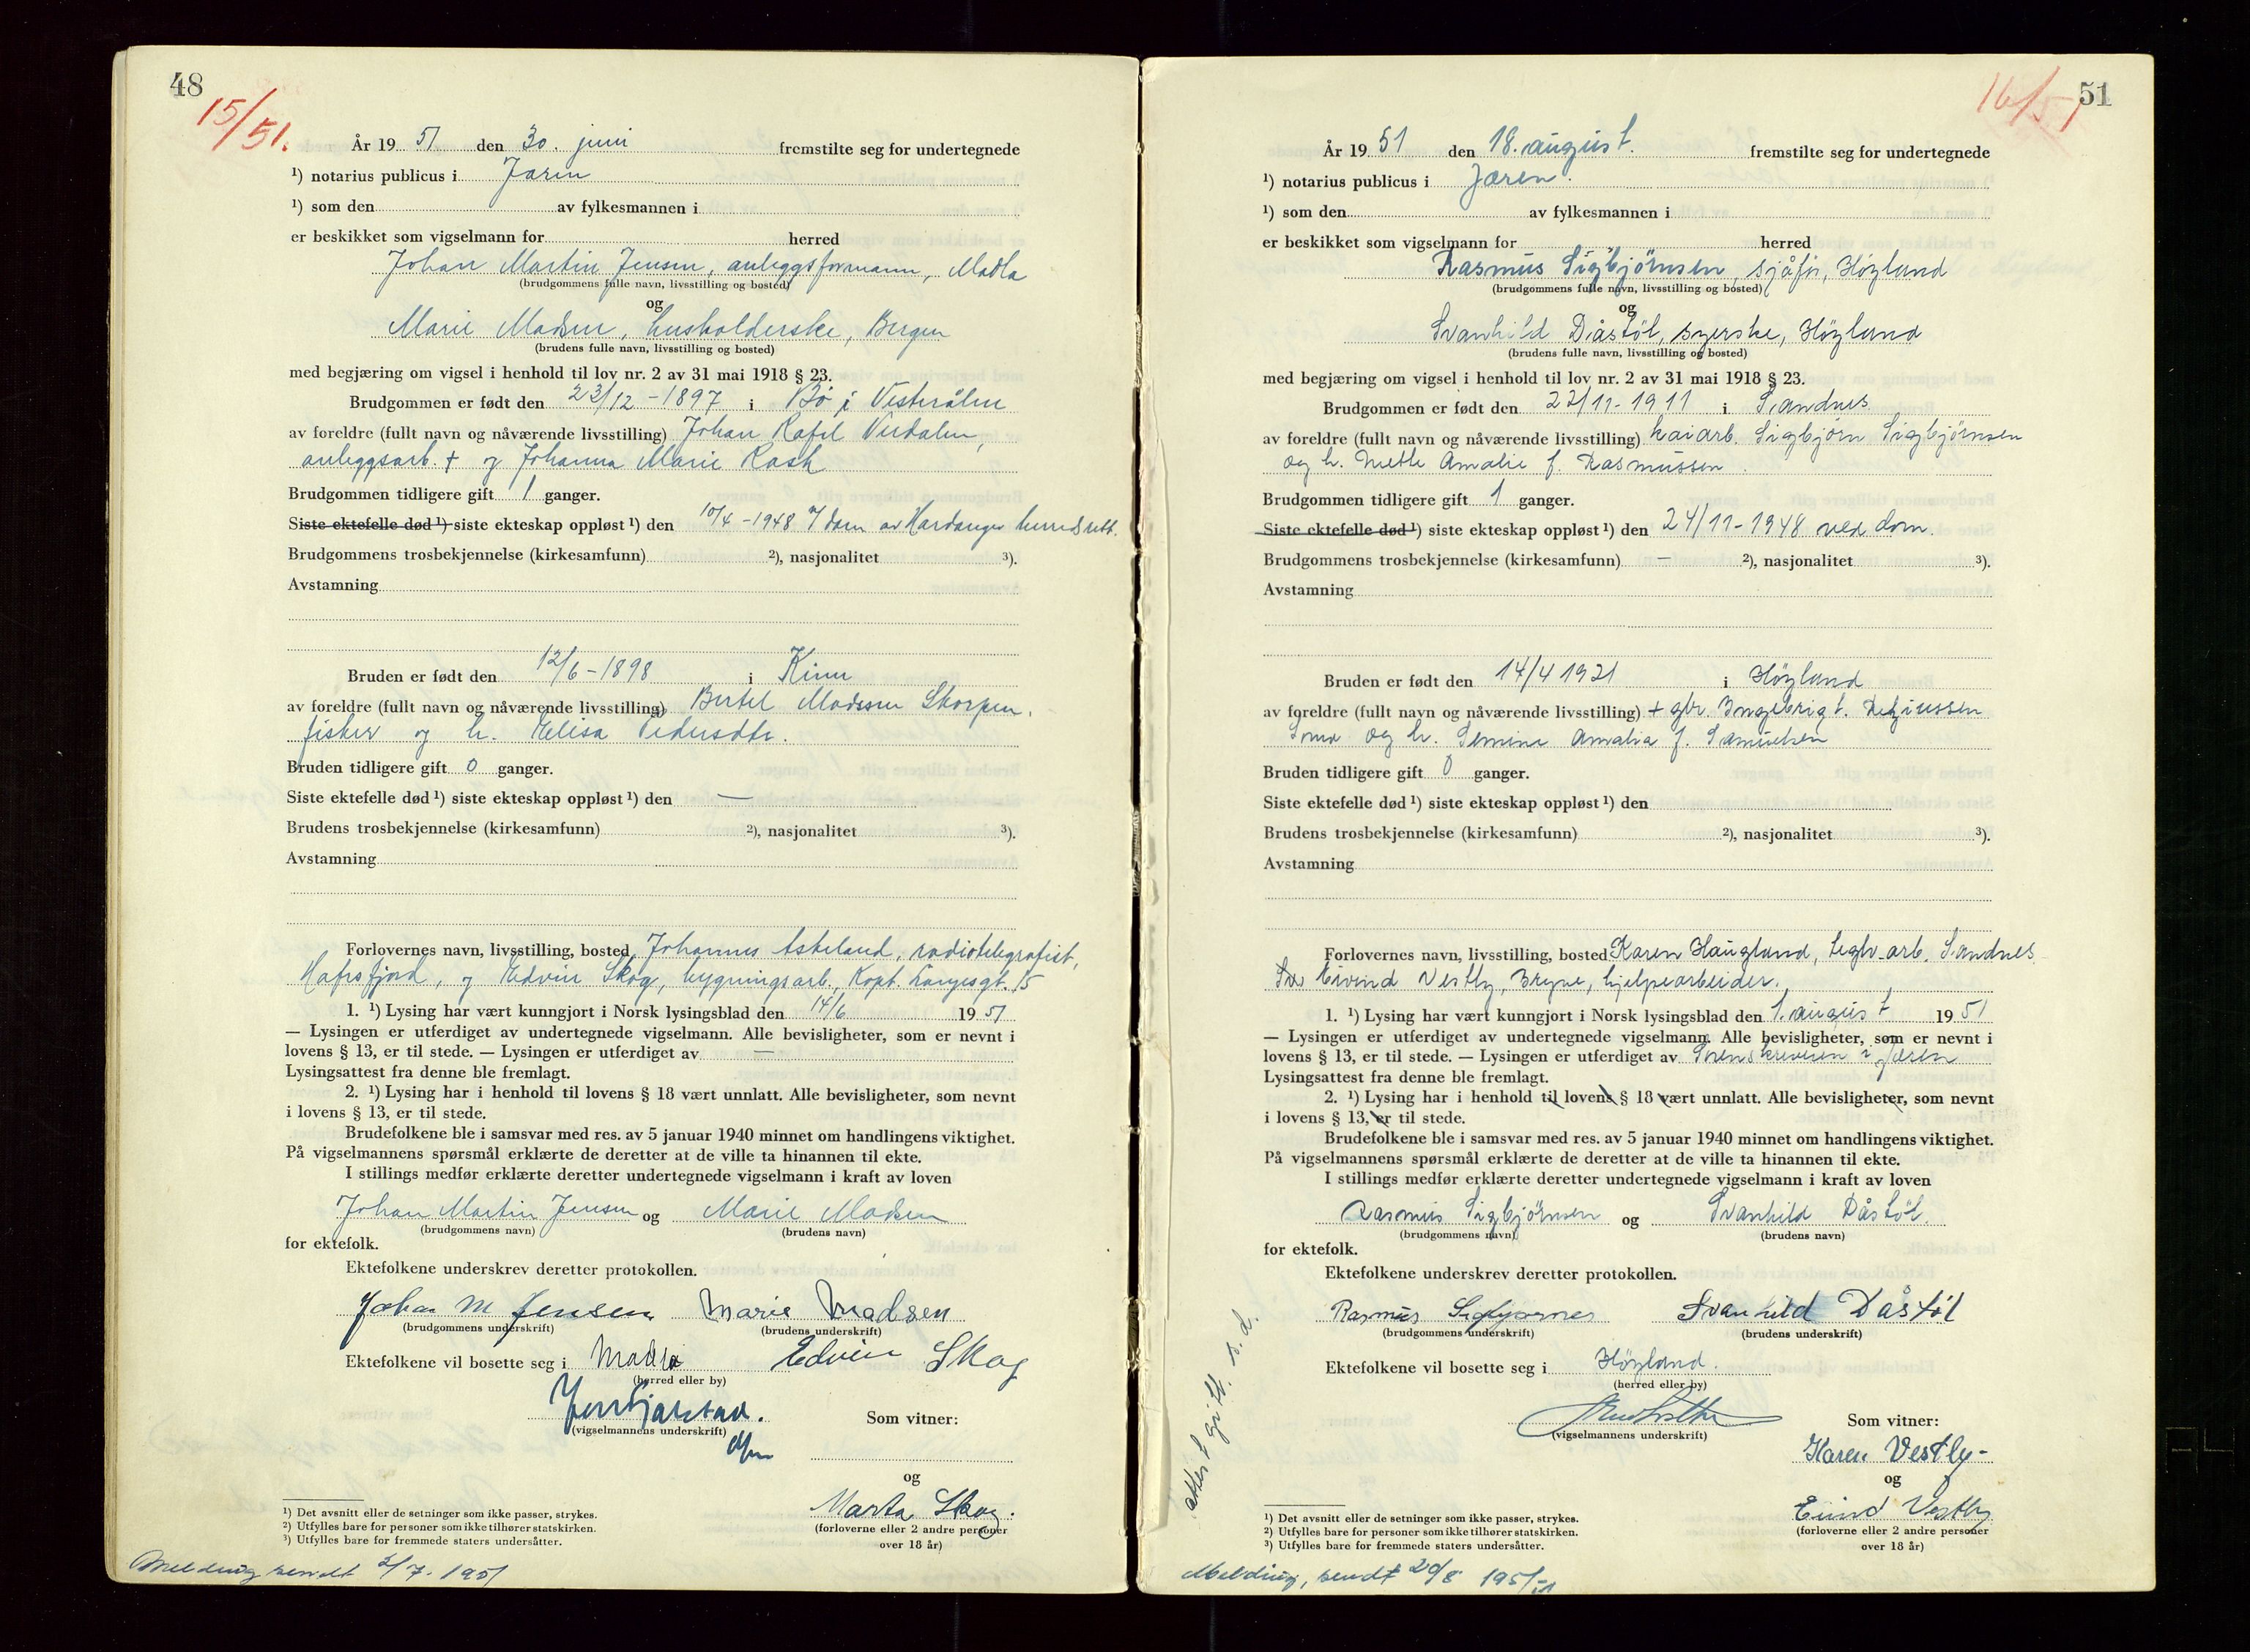 48
15/51.
År 1951 den 30. juni fremstilte seg for undertegnede
¹) notarius publicus i Jæren
¹) som den av fylkesmannen i
er beskikket som vigselmann for herred
Johan Martin Jensen, anleggsformann, Madla
(brudgommens fulle navn, livsstilling og bosted)
og
Marie Madsen, husholderske, Bergen
(brudens fulle navn, livsstilling og bosted)
med begjæring om vigsel i henhold til lov nr. 2 av 31 mai 1918 § 23.
Brudgommen er født den 23/12-1897 i Bö i Vesterålen
av foreldre (fullt navn og nåværende livsstilling) Johan Rafel Virdalen,
anleggsarb. + og Johanna Marie Rask
Brudgommen tidligere gift 1 ganger.
Siste ektefelle død ¹) siste ekteskap oppløst ¹) den 10/4-1948 v/ dom av Hardanger herredsrett.
Brudgommens trosbekjennelse (kirkesamfunn) ²), nasjonalitet ³).
Avstamning
Bruden er født den 12/6-1898 i Kinn
av foreldre (fullt navn og nåværende livsstilling) Bertel Madssen Skorpen,
fisker og h. Elisa Pedersdtr.
Bruden tidligere gift 0 ganger.
Siste ektefelle død ¹) siste ekteskap oppløst ¹) den —
Brudens trosbekjennelse (kirkesamfunn) ²), nasjonalitet ³).
Avstamning
Forlovernes navn, livsstilling, bosted Johannes Askeland, radiotelegrafist,
Hafrsfjord, og Edvin Skog, bygningsarb., Kapt. Langesgt. 15
1. ¹) Lysing har vært kunngjort i Norsk lysingsblad den 14/6 1951
— Lysingen er utferdiget av undertegnede vigselmann. Alle bevisligheter, som er nevnt i
lovens § 13, er til stede. — Lysingen er utferdiget av —
Lysingsattest fra denne ble fremlagt.
2. ¹) Lysing har i henhold til lovens § 18 vært unnlatt. Alle bevisligheter, som nevnt
i lovens § 13, er til stede.
Brudefolkene ble i samsvar med res. av 5 januar 1940 minnet om handlingens viktighet.
På vigselmannens spørsmål erklærte de deretter at de ville ta hinannen til ekte.
I stillings medfør erklærte deretter undertegnede vigselmann i kraft av loven
Johan Martin Jensen og Marie Madsen
(brudgommens navn) (brudens navn)
for ektefolk.
Ektefolkene underskrev deretter protokollen.
Johan M Jensen Marie Madsen
(brudgommens underskrift) (brudens underskrift)
Ektefolkene vil bosette seg i Madla Edvin Skog
(herred eller by)
Som vitner:
(vigselmannens underskrift)
og
Marta Skog.
(forloverne eller 2 andre personer
over 18 år)
¹) Det avsnitt eller de setninger som ikke passer, strykes.
²) Utfylles bare for personer som ikke tilhører statskirken.
³) Utfylles bare for fremmede staters undersåtter.
Melding sendt 2/7. 1951
51
16/51
År 1951 den 18. august. fremstilte seg for undertegnede
¹) notarius publicus i Jæren.
¹) som den av fylkesmannen i
er beskikket som vigselmann for herred
Rasmus Sigbjörnsen, sjåför, Höyland
(brudgommens fulle navn, livsstilling og bosted)
og
Svanhild Dåstöl, syerske, Höyland
(brudens fulle navn, livsstilling og bosted)
med begjæring om vigsel i henhold til lov nr. 2 av 31 mai 1918 § 23.
Brudgommen er født den 22/11-1911 i Sandnes
av foreldre (fullt navn og nåværende livsstilling) kaiarb. Sigbjörn Sigbjörnsen
og h. Mette Amalie f. Rasmussen.
Brudgommen tidligere gift 1 ganger.
Siste ektefelle død ¹) siste ekteskap oppløst ¹) den 24/11-1948 ved dom.
Brudgommens trosbekjennelse (kirkesamfunn) — ²), nasjonalitet ³).
Avstamning
Bruden er født den 14/4 1921 i Höyland
av foreldre (fullt navn og nåværende livsstilling) + gbr. Ingebrigt.
og h. Semine Amalia f. Samuelsen
Bruden tidligere gift 0 ganger.
Siste ektefelle død ¹) siste ekteskap oppløst ¹) den
Brudens trosbekjennelse (kirkesamfunn) ²), nasjonalitet ³).
Avstamning
Forlovernes navn, livsstilling, bosted Karen Haugland, teglv.arb. Sandnes
Eivind Vestly, Bryne, hjelpearbeider.
1. ¹) Lysing har vært kunngjort i Norsk lysingsblad den 1. august 1951
— Lysingen er utferdiget av undertegnede vigselmann. Alle bevisligheter, som er nevnt i
lovens § 13, er til stede. — Lysingen er utferdiget av Sorenskriveren i Jæren
Lysingsattest fra denne ble fremlagt.
2. ¹) Lysing har i henhold til lovens § 18 vært unnlatt. Alle bevisligheter, som nevnt
i lovens § 13, er til stede.
Brudefolkene ble i samsvar med res. av 5 januar 1940 minnet om handlingens viktighet.
På vigselmannens spørsmål erklærte de deretter at de ville ta hinannen til ekte.
I stillings medfør erklærte deretter undertegnede vigselmann i kraft av loven
Rasmus Sigbjörnsen og Svanhild Dåstöl.
(brudgommens navn) (brudens navn)
for ektefolk.
Ektefolkene underskrev deretter protokollen.
Rasmus Svanhild Dåstöl
(brudgommens underskrift) (brudens underskrift)
Ektefolkene vil bosette seg i Höyland.
(herred eller by)
Som vitner:
(vigselmannens underskrift)
Karen Vestly-
og
Eivind Vestly
(forloverne eller 2 andre personer
over 18 år)
attest gitt. s. d.
¹) Det avsnitt eller de setninger som ikke passer, strykes.
²) Utfylles bare for personer som ikke tilhører statskirken.
³) Utfylles bare for fremmede staters undersåtter.
Melding, sendt 20/8 1951